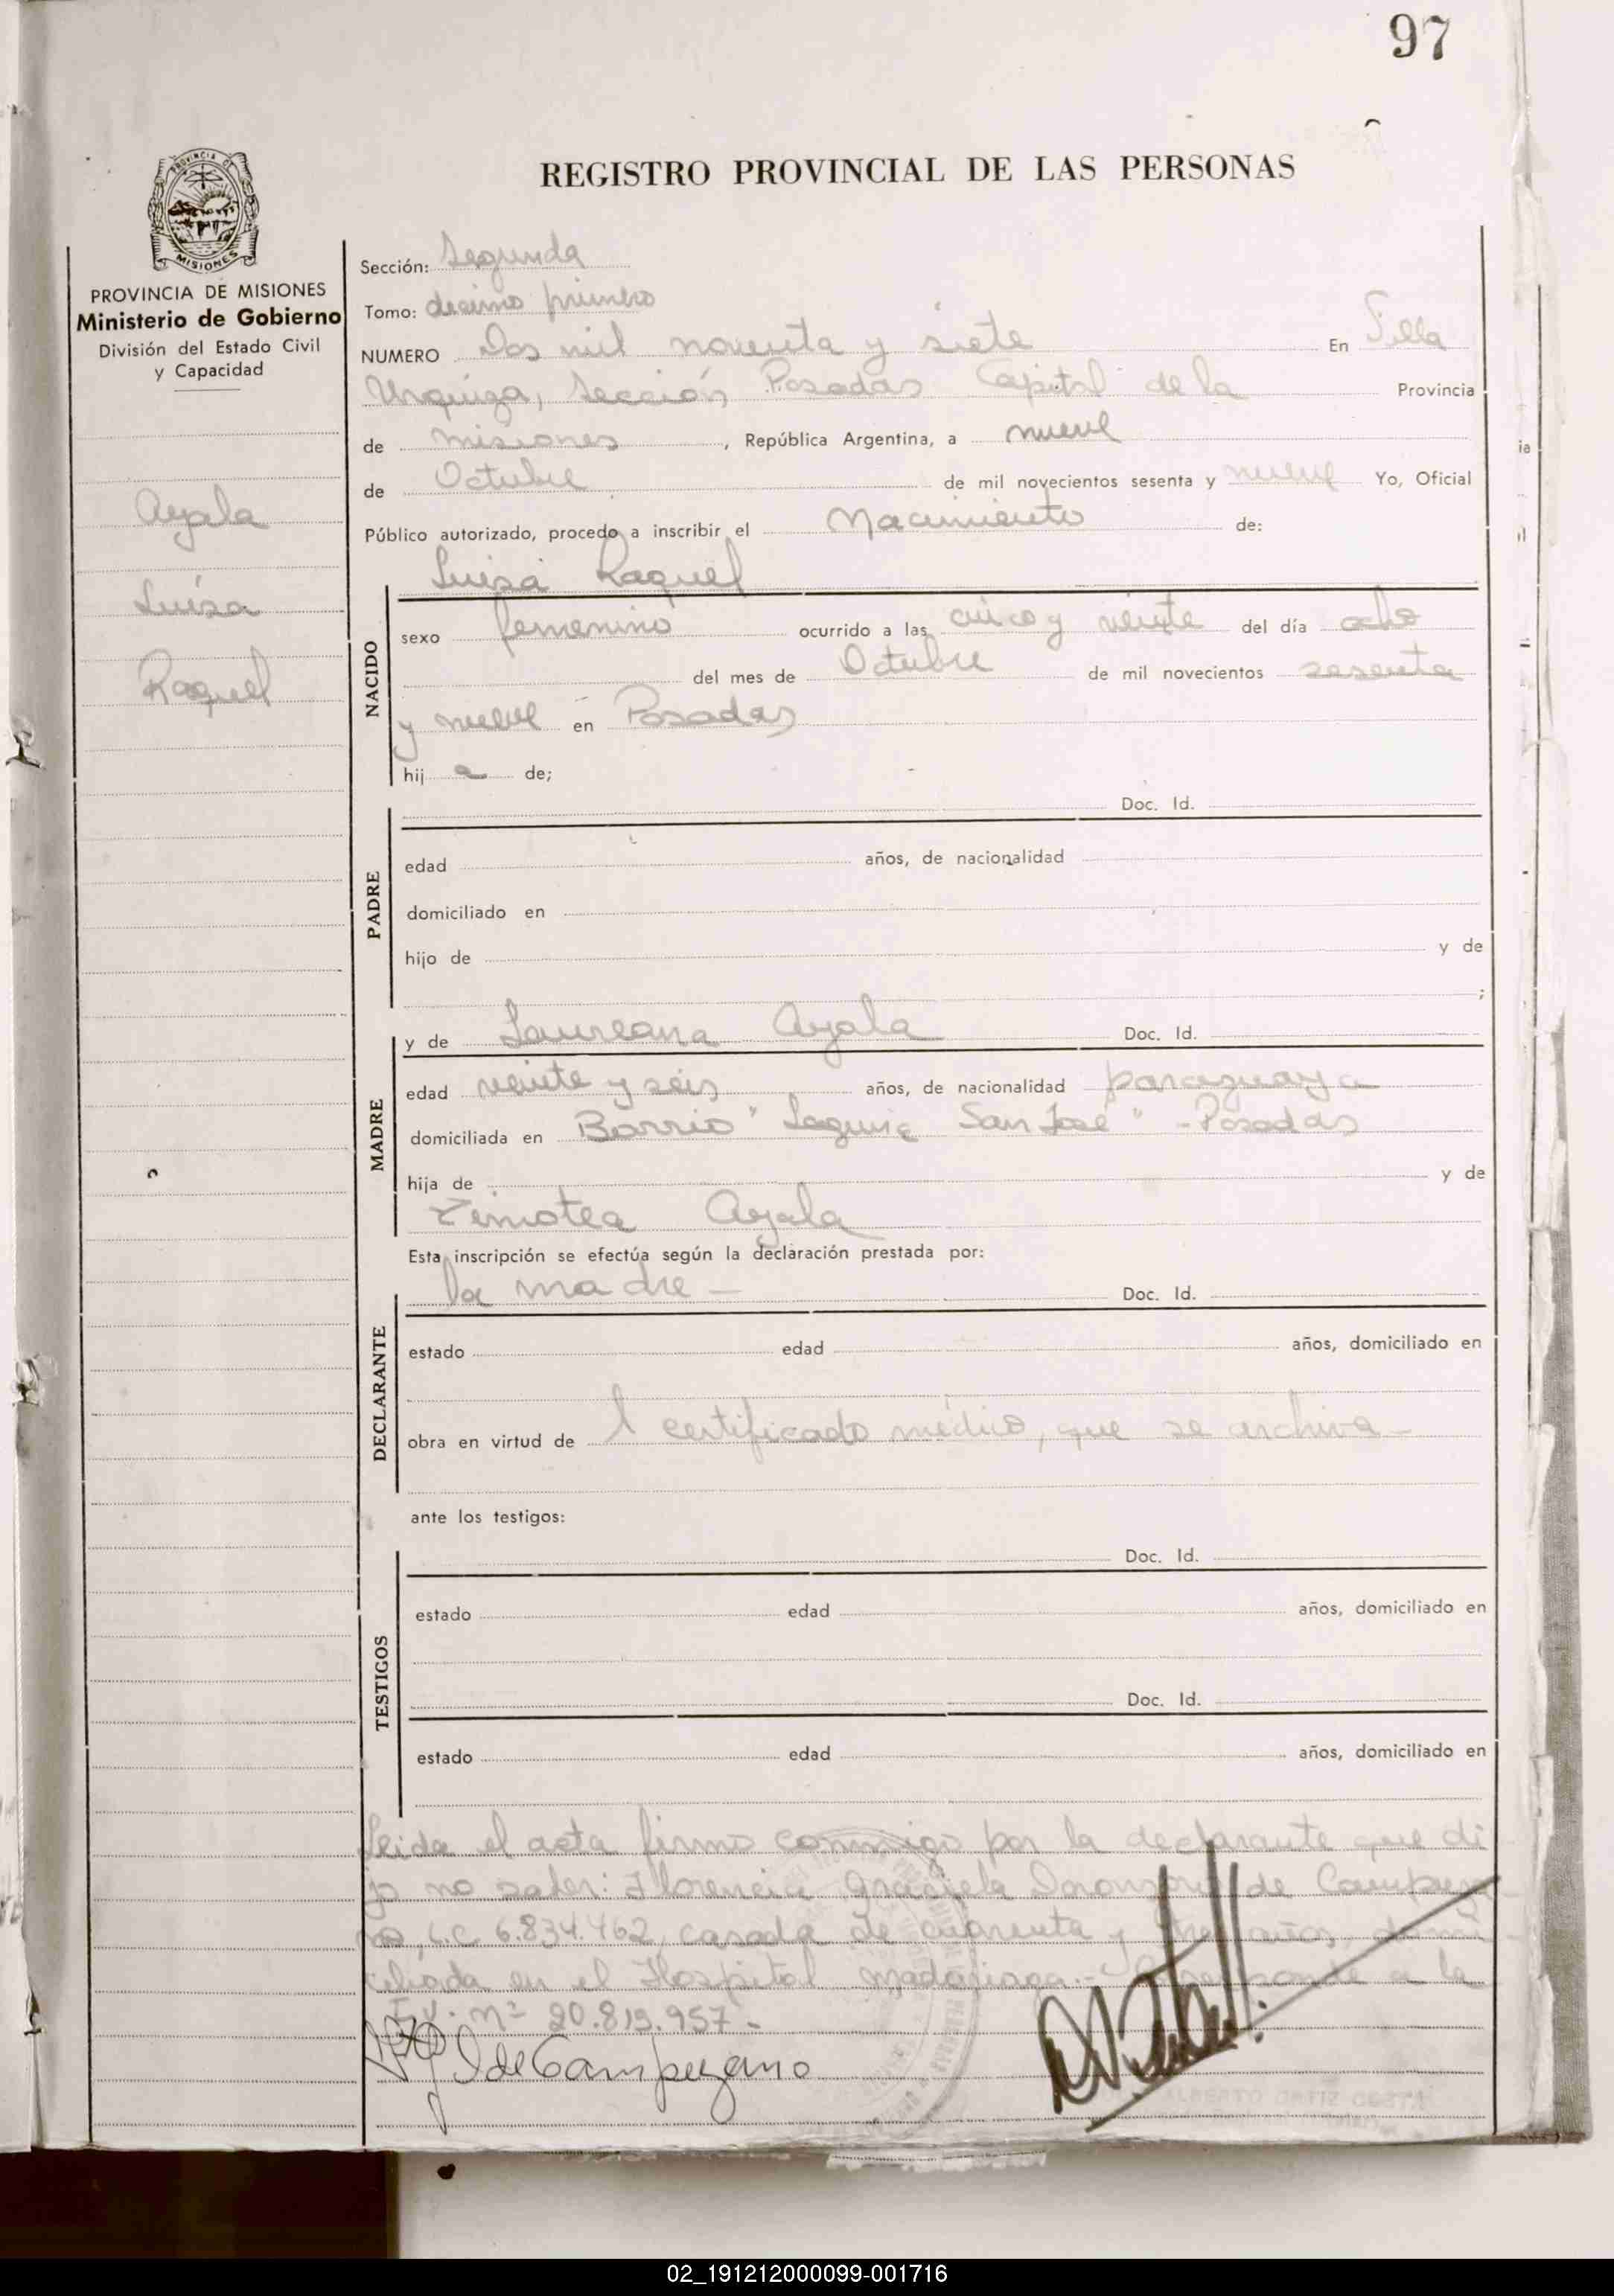 97
REGISTRO PROVINCIAL DE LAS PERSONAS
PROVINCIA DE MISIONES
PROVINCIA DE MISIONES
Ministerio de Gobierno
División del Estado Civil
y Capacidad
Ayala
Luisa
Raquel
Sección: Segunda
Tomo: decimo primero
NUMERO Dos mil noventa y siete En Villa
Urquiza, Sección Posadas Capital de la Provincia
de Misiones, República Argentina, a nueve
de Octubre de mil novecientos sesenta y nueve Yo, Oficial
Público autorizado, procedo a inscribir el Nacimiento de:
Luisa Raquel
NACIDO
sexo femenino ocurrido a las cinco y veinte del día ocho
del mes de Octubre de mil novecientos sesenta
y nueve en Posadas
hij a de;
Doc. Id.
PADRE
edad años, de nacionalidad
domiciliado en
hijo de y de
;
y de Laureana Ayala Doc. Id.
MADRE
edad veinte y seis años, de nacionalidad paraguaya
domiciliada en Barrio "Laguna San José" - Posadas
hija de y de
Timotea Ayala
Esta inscripción se efectúa según la declaración prestada por:
la madre - Doc. Id.
DECLARANTE
estado edad años, domiciliado en
obra en virtud de l certificado médico, que se archiva -
ante los testigos:
Doc. Id.
TESTIGOS
estado edad años, domiciliado en
Doc. Id.
estado edad años, domiciliado en
Leida el acta firmo conmigo por la declarante que di
jo no saber: Florencia Graciela de Campuza
no, L.C. 6.834.462, casada de cuarenta y años, domi
ciliada en el Hospital Madariaga.- a la
nº 20.819.957 -
de Campuzano
ALBERTO ORTIZ
02_191212000099-001716